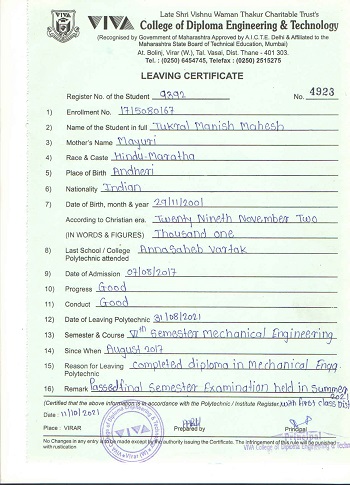 Late Shri Vishnu Waman Thakur Charitable Trust's
VIVA College of Diploma Engineering & Technology
(Recognised by Government of Maharashtra Approved by A.I.C.T.E. Delhi & Affiliated to the
Maharashtra State Board of Technical Education, Mumbai)
At. Bolinj, Virar (W), Tal. Vasai, Dist. Thane - 401 303.
Tel. : (0250) 6454745, Telefax : (0250) 2515275
LEAVING CERTIFICATE
Register No. of the Student 9392 No. 4923
1) Enrollment No. 1715080167
2) Name of the Student in full Tukral Manish Mahesh
3) Mother's Name Mayuri
4) Race & Caste Hindu-Maratha
5) Place of Birth Andheri
6) Nationality Indian
7) Date of Birth, month & year 29/11/2001
According to Christian era. Twenty Nineth November Two
(IN WORDS & FIGURES) Thousand one
8) Last School / College AnnaSaheb Vartak
Polytechnic attended
9) Date of Admission 07/08/2017
10) Progress Good
11) Conduct Good
12) Date of Leaving Polytechnic 31/08/2021
13) Semester & Course VIth Semester Mechanical Engineering
14) Since When August 2017
15) Reason for Leaving completed diploma in Mechanical Engg.
Polytechnic
16) Remark Passed final Semester Examination held in Summer 2021
(Certified that above information is in accordance with the Polytechnic / Institute Register) with First class Dist
Date : 11/10/2021
Place : VIRAR Prepared by Principal
Principal
VIVA College of Diploma Engineering & Technology
No Changes in any entry is to be made except by the authority issuing the Certificate. The infringement of this rule will be punished
with rustication